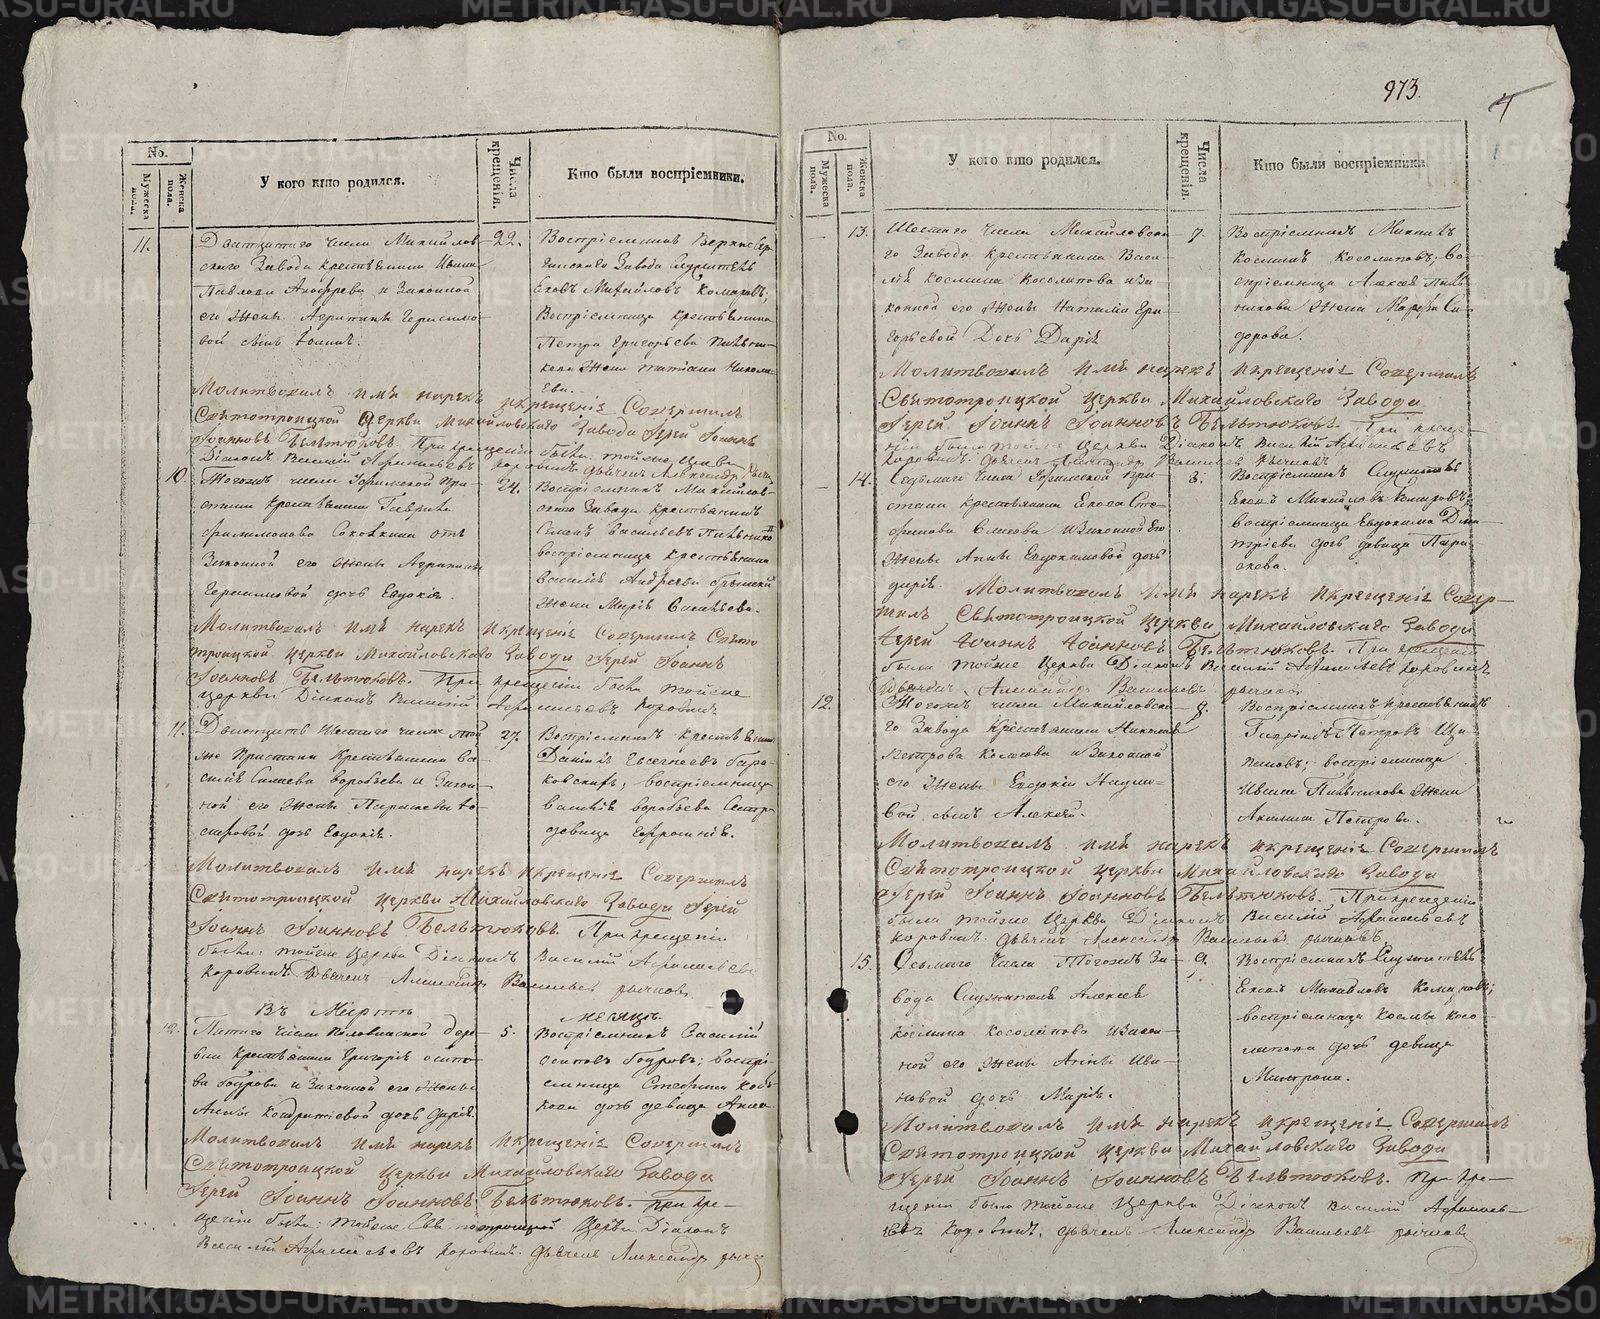 No.
Мужеска пола.
Женска пола.
У кого кто родился.
Числа крещенія.
Кто были воспріемники.
11.
Двадцатаго числа Михайлов-
скаго Завода крестьянина Ивана
Павлова и Законной
его Жены Агрипины Герасимо-
вой сынъ Іоаннъ.
22.
Воспріемникъ Верхне Сер-
гинскаго Завода Служитель
Михайловъ Комаровъ;
Воспріемница крестьянина
Петра Григорьева
Жена Татіана Никола-
ева.
Молитвовалъ имя нарекъ и крещеніе Совершилъ
Святотроицкой Церкви Михайловскаго Завода Іерей Іоаннъ
Іоанновъ Бельтюковъ. При крещеніи были: тойже Церкви
Діаконъ Василій Афанасьевъ Коровинъ дьячекъ Александръ
10.
Тогожъ числа Уфимской При-
стани Крестьянина Гаврила
Филимонова отъ
Законной его Жены Агрипины
Герасимовой дочь Евдокія.
24.
Воспріемникъ Михайлов-
скаго Завода крестьянинъ
Васильевъ
воспріемница крестьянина
Василія Андреева
Жена Марія Савельева.
Молитвовалъ имя нарекъ и крещеніе Совершилъ Свято
троицкой Церкви Михайловскаго Завода Іерей Іоаннъ
Іоанновъ Бельтюковъ. При крещеніи были тойже
церкви Діаконъ Василій Афанасьевъ Коровинъ
11.
Двадцать Шестаго числа той
же Пристани Крестьянина Ва-
силія Воробьева и Закон-
ной его Жены Парасковьи Іо-
сифовой дочь Евдокія.
27.
Воспріемникъ Крестьянинъ
Даніилъ Евсигнеевъ
воспріемница
Василія Воробьева Сестра
девица Ефросинія.
Молитвовалъ имя нарекъ и крещеніе Совершилъ
Святотроицкой Церкви Михайловскаго Завода Іерей
Іоаннъ Іоанновъ Бельтюковъ. При крещеніи
были: тойже Церкви Діаконъ Василій Афанасьевъ
Коровинъ Дьячекъ Александръ Васильевъ Рычковъ
Въ Мартѣ месяцѣ.
12.
Пятаго числа Половинной дере-
вни крестьянина Григорія Осипо-
ва Бодрова и Законной его Жены
Анны Кондратьевой дочь Дарія.
5.
Воспріемникъ Василій
Осиповъ Бодровъ; воспрі-
емница
дочь девица Анна
Молитвовалъ имя нарекъ и крещеніе Совершилъ
Святотроицкой Церкви Михайловскаго Завода
Іерей Іоаннъ Іоанновъ Бельтюковъ. При кре-
щеніи были: тойже Святотроицкой Церкви Діаконъ
Василій Афанасьевъ Коровинъ. дьячекъ Александръ
973.
No.
Мужеска пола.
Женска пола.
У кого кто родился.
Числа крещенія.
Кто были воспріемники
13.
Шестаго числа Михайловска-
го Завода крестьянина Васи-
лія Космина Косолапова и За-
конной его Жены Наталіи Гри-
горьевой Дочь Дарія
7.
Воспріемникъ Михаилъ
Косминъ Косолаповъ; во-
спріемница Алексея
Жена Марфа Си-
дорова.
Молитвовалъ имя нарекъ и крещеніе Совершилъ
Святотроицкой Церкви Михайловскаго Завода
Іерей Іоаннъ Іоанновъ Бельтюковъ. При креще-
ніи были тойже Церкви Діаконъ Василій Афанасьевъ
Коровинъ. дьячекъ Александръ Васильевъ Рычковъ
14.
Седьмаго числа Уфимской При-
стани крестьянина
и Законной его
Жены Анны Евдокимовой дочь
Дарія.
8.
Воспріемникъ Служитель
Михайловъ Комаровъ;
воспріемница Евдокима Дми-
тріева дочь девица Пара-
скева.
Молитвовалъ имя нарекъ и крещеніе Совер-
шилъ Святотроицкой Церкви Михайловскаго Завода
Іерей Іоаннъ Іоанновъ Бельтюковъ. При крещеніи
были тойже Церкви Діаконъ Василій Афанасьевъ Коровинъ
Дьячекъ Александръ Васильевъ Рычковъ
12.
Тогожъ числа Михайловска-
го Завода Крестьянина
Петрова и Законной
его Жены Евдокіи
вой сынъ Алексей.
9.
Воспріемникъ крестьянинъ
Гавріилъ Петровъ
воспріемница
Ивана Жена
Петрова.
Молитвовалъ имя нарекъ и крещеніе Совершилъ
Святотроицкой Церкви Михайловскаго Завода
Іерей Іоаннъ Іоанновъ Бельтюковъ. При крещеніи
были тойже Церкви Діаконъ Василій Афанасьевъ
Коровинъ. дьячекъ Александръ Васильевъ Рычковъ
15.
Осьмаго числа Тогожъ За-
вода Служителя Алексея
Космина Косолапова и Закон-
ной его Жены Анны Ива-
новой дочь Марія.
9.
Воспріемникъ Служитель
Михайловъ Комаровъ;
воспріемница Космы Косо-
лапова дочь девица
Матрона.
Молитвовалъ имя нарекъ и крещеніе Совершилъ
Святотроицкой Церкви Михайловскаго Завода
Іерей Іоаннъ Іоанновъ Бельтюковъ. При кре-
щеніи были тойже Церкви Діаконъ Василій Афанась-
евъ Коровинъ, дьячекъ Александръ Васильевъ Рычковъ
METRIKI.GASO-URAL.RU